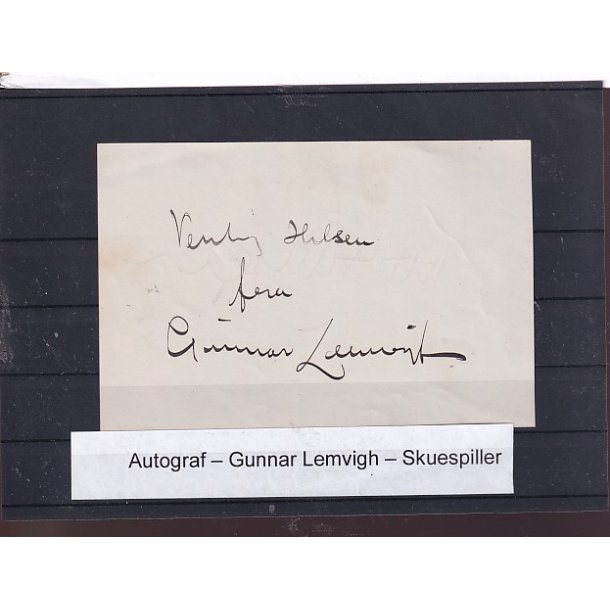 Venlig Hilsen
fra
Gunnar Lemvigh
Autograf – Gunnar Lemvigh – Skuespiller